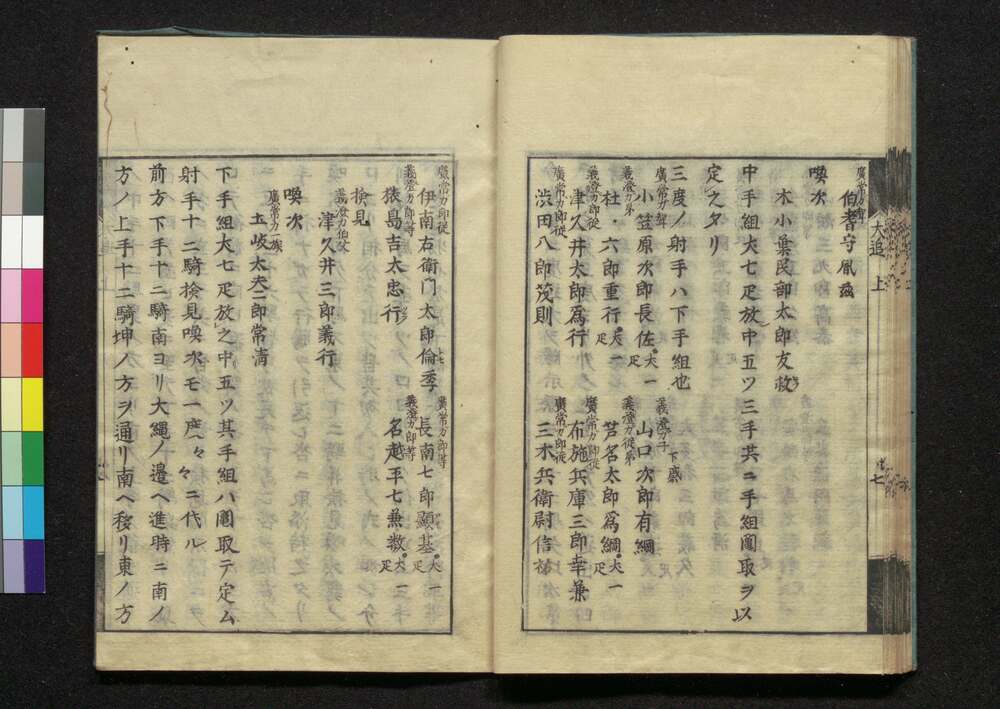 犬追 上
七
廣常カ甥
伯耆守風益
喚次
木小葉民部太郎友救
中手組犬七疋放中五ツ三手共ニ手組䦰取ヲ以
定之タリ
三度ノ射手ハ下手組也
廣常カ甥 義澄カ子 下慼
小笠原次郎長佐犬一疋 山口次郎有綱
義澄カ弟 義澄カ従弟
杜六郎重行犬一疋 芦名太郎爲綱犬一疋
義澄カ郎従 廣常カ郎従
津久井太郎爲行 布施兵庫三郎幸兼
廣常カ郎従 廣常カ郎従
渋田八郎茂則 三木兵衛尉信祐
廣常カ郎従 廣常カ郎等
伊南右衛門太郎倫季 長南七郎顕基犬一疋
義澄カ郎等 義澄カ郎等
猿島吉太忠行 名越平七兼数犬一疋
検見
義澄カ伯父
津久井三郎義行
喚次
廣常カ一族
土岐太夫二郎常清
下手組犬七疋放之中五ツ其手組ハ䦰取テ定ム
射手十二騎検見喚次モ一度々々ニ代ル
前方下手十二騎南ヨリ大縄ノ邉ヘ進時ニ南ノ
方ノ上手十二騎坤ノ方ヲ通リ南ヘ移リ東ノ方